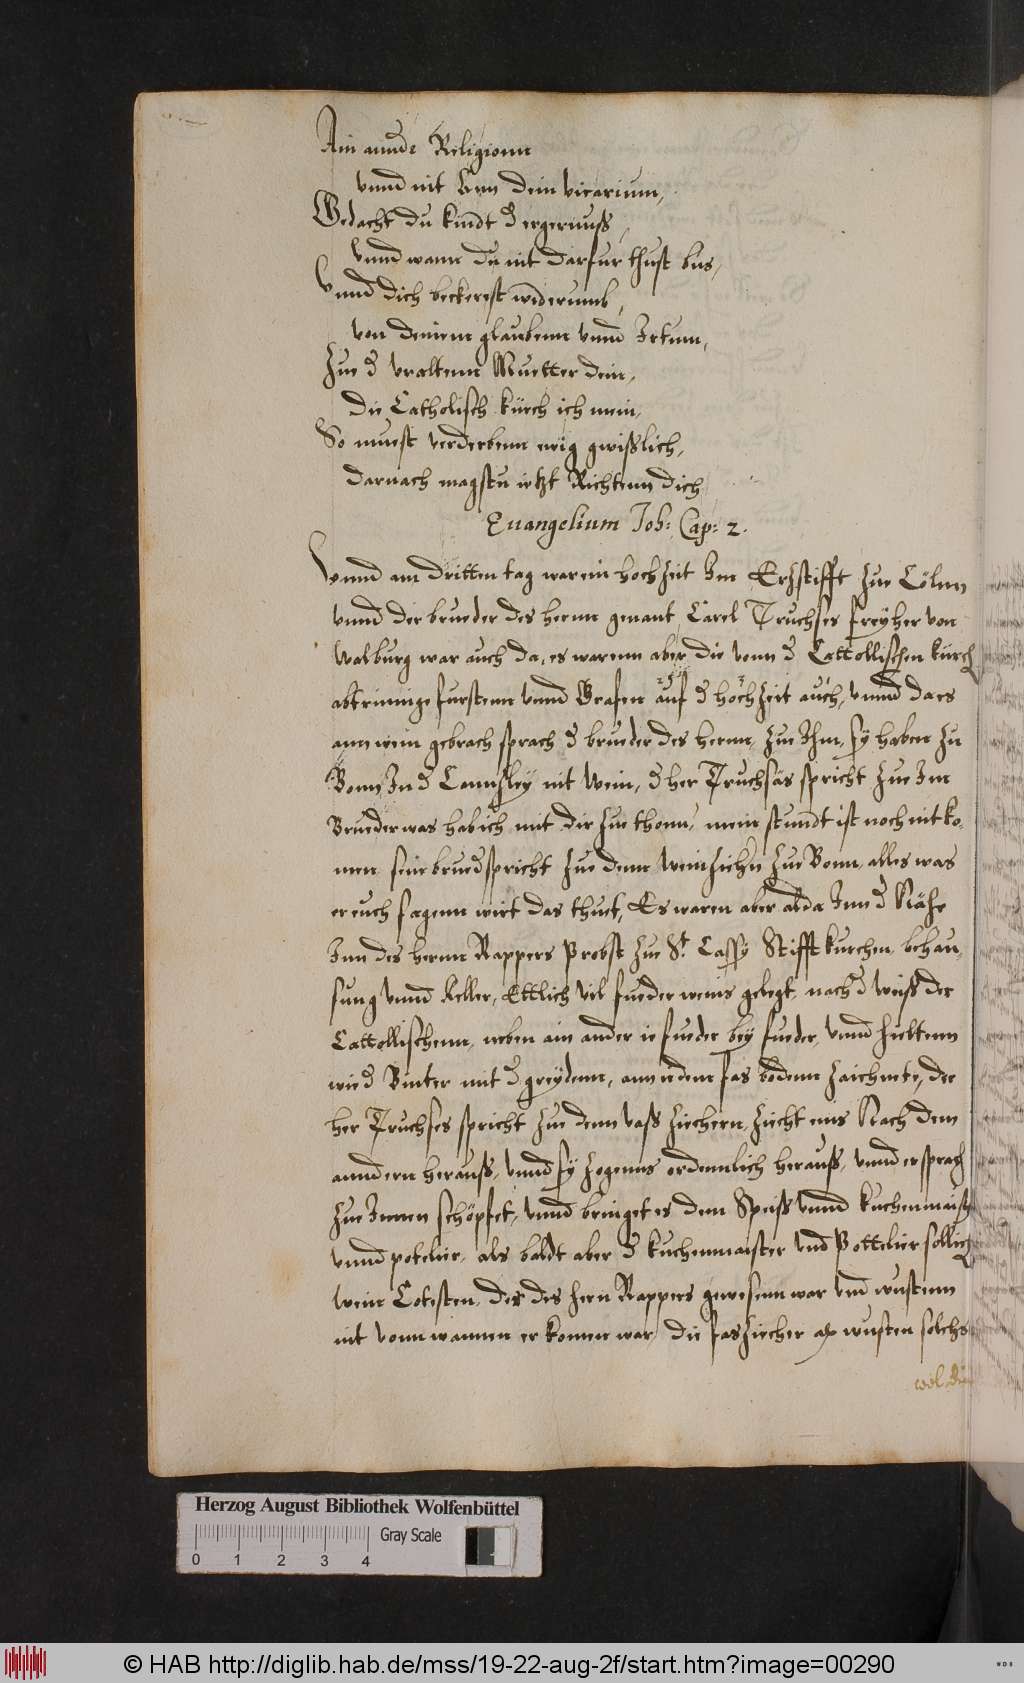 Ain annde Religionn
vnnd nit kun dein vicarium,
Gedacht du kindt d ergernuss,
Vnnd wann du nit darfur thust bus,
Vnnd dich beckerest widerumb,
von deinem glaubenn vnnd Irtum,
Zue d vraltenn Muetter dein,
die Catholisch kürch ich mein,
So muest verderbenn ewig gwißlich,
darnach magstu ietzt Richtenn dich
Euangelium Joh: Cap: 2.
Vnnd am dritten tag war ein hochzeit Im Erzstifft zue Cöln
vnnd der brueder des herrn genant Carel Truchses freyher von
Walburg war auch da, es warenn aber die vonn d Cattollischen kürch
abtrinnige furstenn vnnd Grafen auf d hochzeit auch, vnnd da es
ann wein gebrach sprach d brueder des herrn, zue Ihm, sy haben zu
Bonn In d Cannzley nit Wein, d her Truchsäs spricht zue Im
Brueder was hab ich mit dir zue thonn, mein stundt ist noch nit ko,
men sein brued spricht zue denn Weinziehrn zue Bonn, alles was
er euch sagenn wirt das thuet, Es waren aber alda Inn d Nähe
Inn des herrn Rappers Probst zue St Cassy Stifftkurchen, behau,
sung vnnd keller, Ettlich vil fueder weins gelegt, nach d weiß der
Cattollischenn, neben ain ander ie fueder bey fueder, vnnd hieltenn
wie d Binter mit d greydenn, ann iedem fas bodenn zaichnete, der
her Truchses spricht zue denn vass ziehern, ziecht ains Nach dem
anndern herauss, vnnd sy zogenns ordennlich herauss, vnnd er sprach
zue Innen schöpfet, vnnd bringet es dem Speiss vnnd kuchenmaister
vnnd potelier, als baldt aber d kuchenmaister vnd Pottelier sollich
Wein Cotesten, der des hern Rappers gewesenn war vnd wustenn
nit vonn wannen er komen war, die fasziecher aber wusten solchs
wol die
Herzog August Bibliothek Wolfenbüttel
0 1 2 3 4
Gray Scale
© HAB http://diglib.hab.de/mss/19-22-aug-2f/start.htm?image=00290